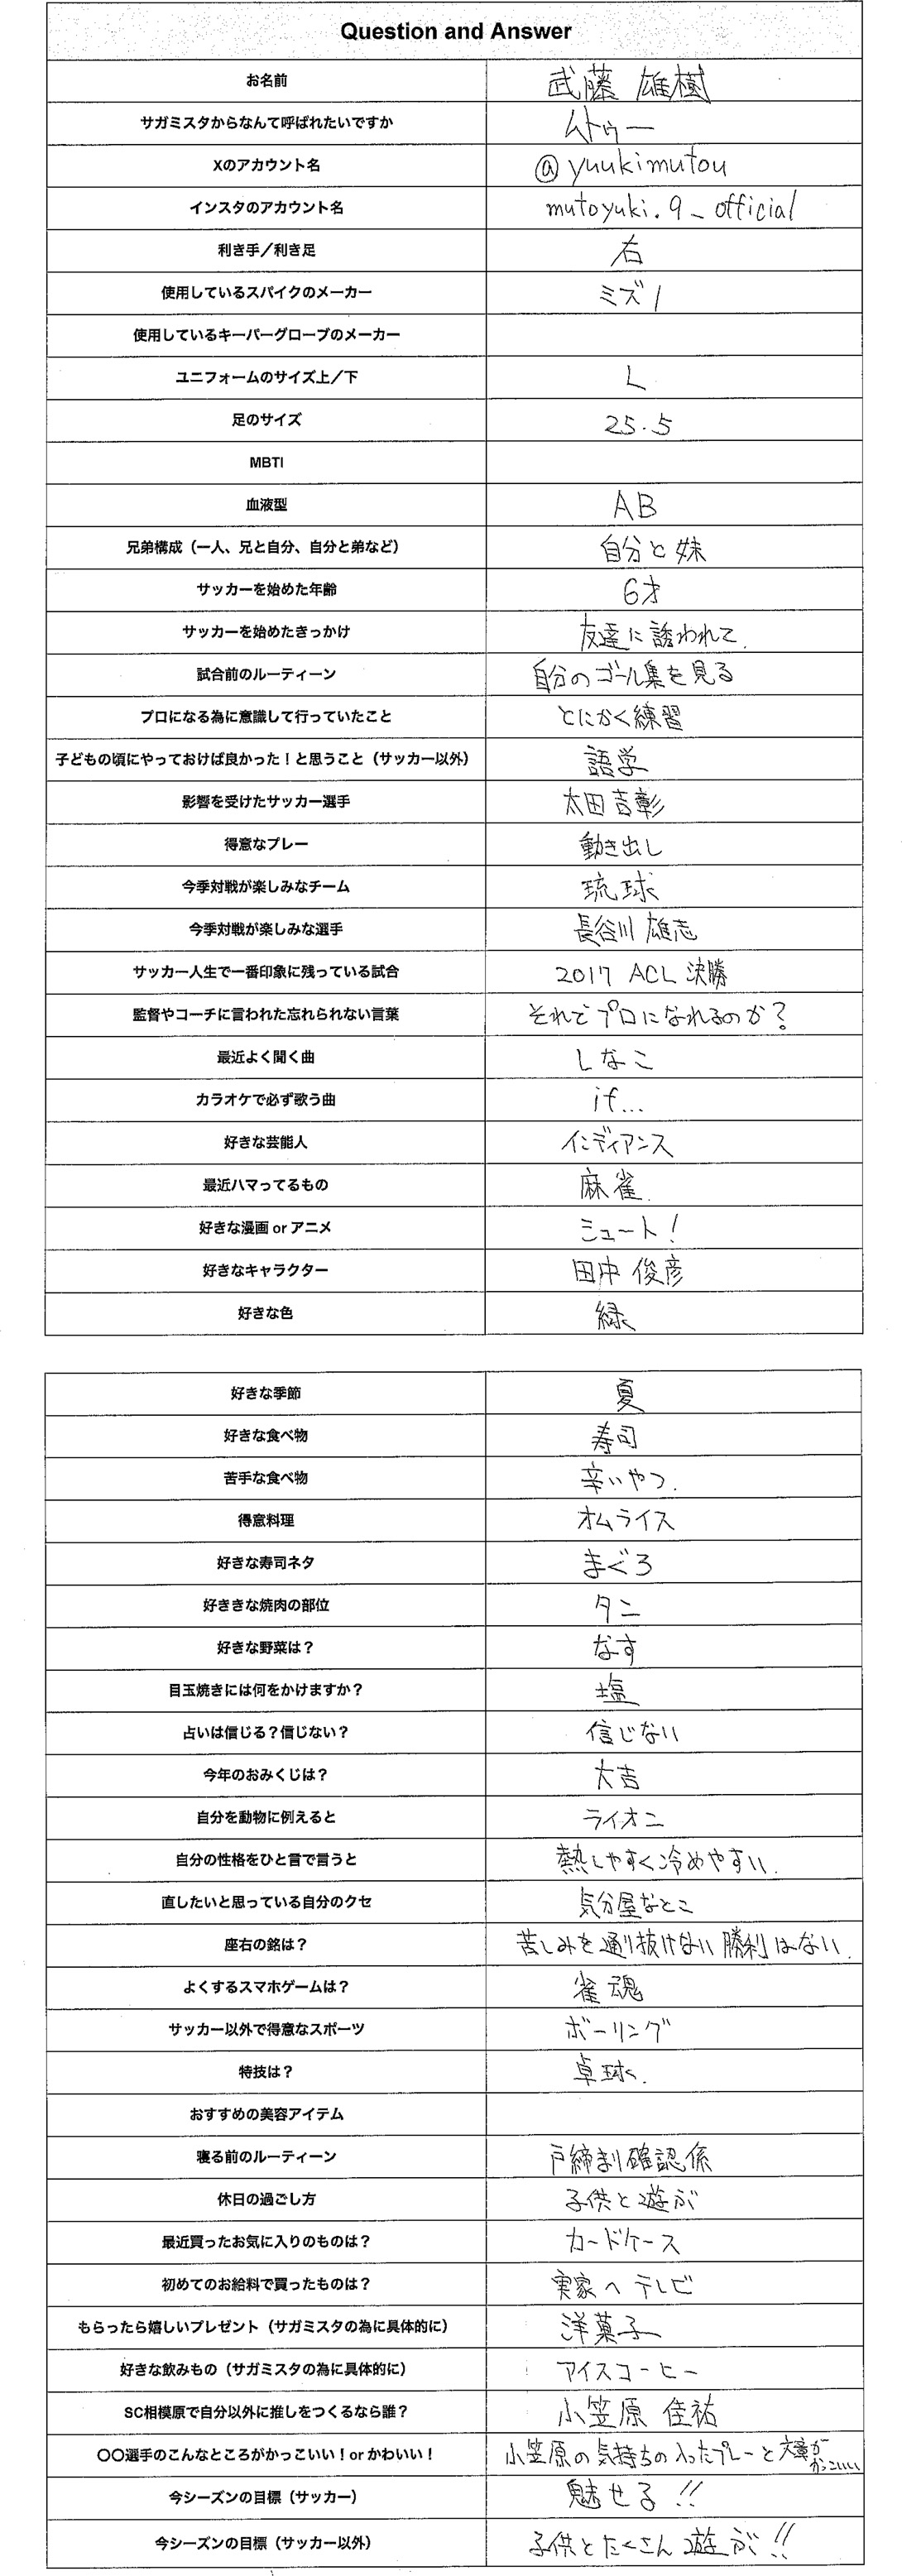 Question and Answer
お名前 武藤 雄樹
サガミスタからなんて呼ばれたいですか ムトゥー
Xのアカウント名 @yuukimutou
インスタのアカウント名 mutoyuki.9_official
利き手／利き足 右
使用しているスパイクのメーカー ミズノ
使用しているキーパーグローブのメーカー
ユニフォームのサイズ上／下 L
足のサイズ 25.5
MBTI
血液型 AB
兄弟構成（一人、兄と自分、自分と弟など） 自分と妹
サッカーを始めた年齢 6才
サッカーを始めたきっかけ 友達に誘われて.
試合前のルーティーン 自分のゴール集を見る
プロになる為に意識して行っていたこと とにかく練習
子どもの頃にやっておけば良かった！と思うこと（サッカー以外） 語学
影響を受けたサッカー選手 太田吉彰
得意なプレー 動き出し
今季対戦が楽しみなチーム 琉球
今季対戦が楽しみな選手 長谷川 雄志
サッカー人生で一番印象に残っている試合 2017 ACL 決勝
監督やコーチに言われた忘れられない言葉 それでプロになれるのか？
最近よく聞く曲 しなこ
カラオケで必ず歌う曲 if...
好きな芸能人 インディアンス
最近ハマってるもの 麻雀.
好きな漫画 or アニメ シュート！
好きなキャラクター 田中 俊彦
好きな色 緑
好きな季節 夏
好きな食べ物 寿司
苦手な食べ物 辛いやつ.
得意料理 オムライス
好きな寿司ネタ まぐろ
好ききな焼肉の部位 タン
好きな野菜は？ なす
目玉焼きには何をかけますか？ 塩
占いは信じる？信じない？ 信じない
今年のおみくじは？ 大吉
自分を動物に例えると ライオン
自分の性格をひと言で言うと 熱しやすく冷めやすい.
直したいと思っている自分のクセ 気分屋なとこ
座右の銘は？ 苦しみを通り抜けない勝利はない.
よくするスマホゲームは？ 雀魂
サッカー以外で得意なスポーツ ボーリング
特技は？ 卓球.
おすすめの美容アイテム
寝る前のルーティーン 戸締まり確認係
休日の過ごし方 子供と遊ぶ
最近買ったお気に入りのものは？ カードケース
初めてのお給料で買ったものは？ 実家へテレビ
もらったら嬉しいプレゼント（サガミスタの為に具体的に） 洋菓子
好きな飲みもの（サガミスタの為に具体的に） アイスコーヒー
SC相模原で自分以外に推しをつくるなら誰？ 小笠原 佳祐
〇〇選手のこんなところがかっこいい！or かわいい！ 小笠原の気持ちの入ったプレーと文章が
かっこいい
今シーズンの目標（サッカー） 魅せる!!
今シーズンの目標（サッカー以外） 子供とたくさん遊ぶ!!